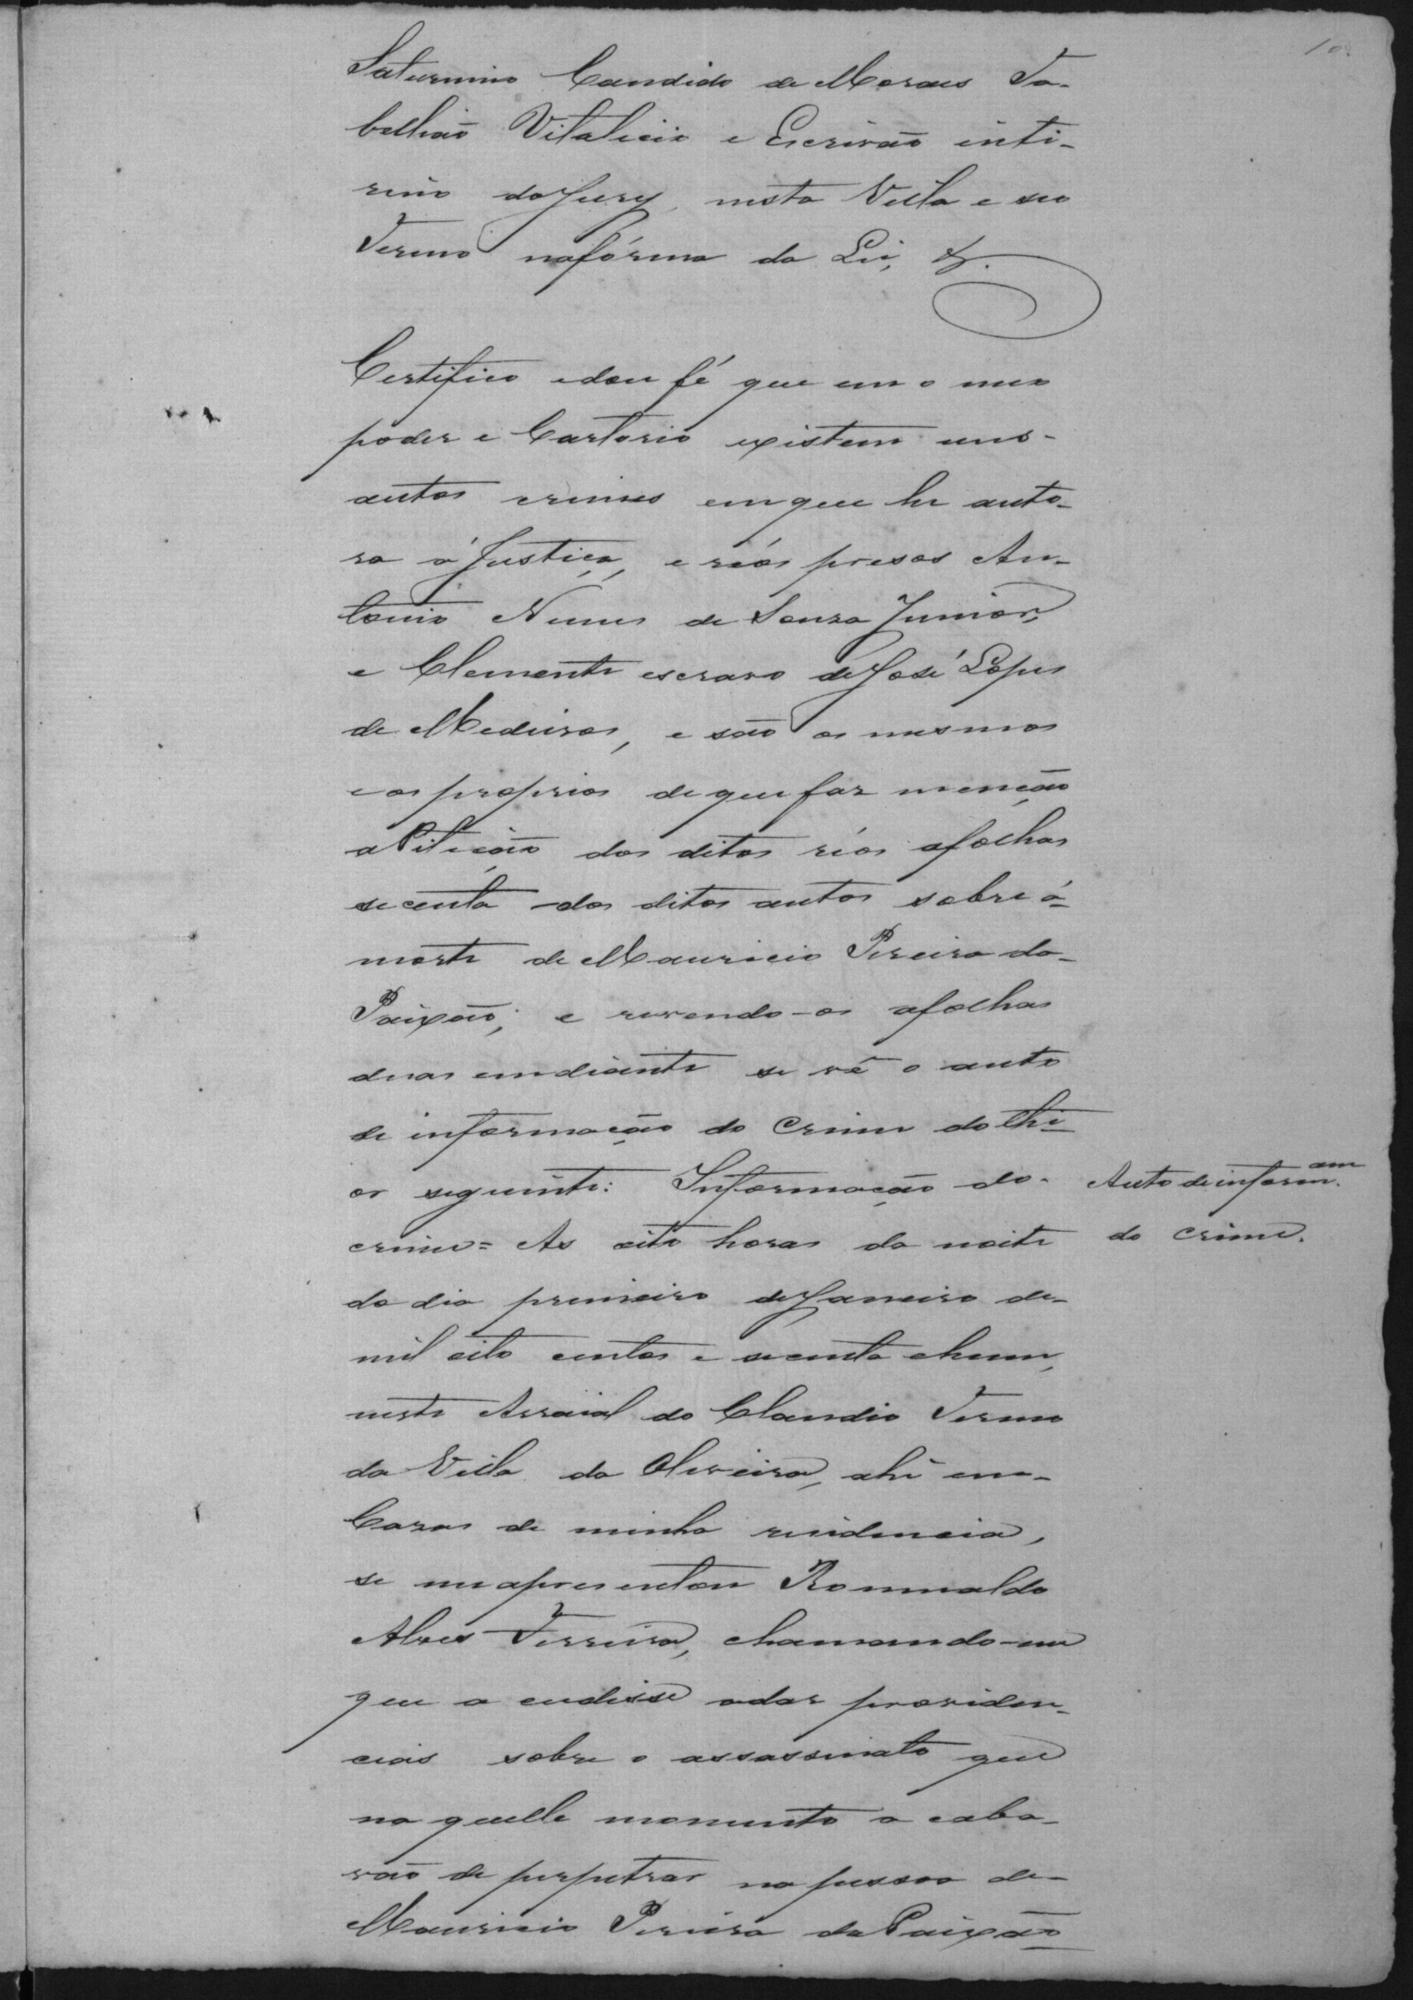 10
Saturnino Candido de Moraes Ta-
bellião Vitalicio e Escrivão inti-
rino do Jury, nesta Villa e seo
Termo na fórma da Lei, &.
Certifico e dou fé que em o meo
poder e Cartorio existem uns-
autos crimes em que he auto-
ra á Justiça, e réos presos An-
tonio Nunes de Souza Junior,
e Clemente escravo de José Lopes
de Medeiros, e são os mesmos
e os proprios de que faz menção
a Petição dos ditos réos afolhas
secenta dos ditos autos sobre á-
morte de Mauricio Pereira da-
Paixão; e revendo-os afolhas
duas emdiante se vê o auto
de informação do Crime do thi-
or seguinte: Informação do-
crime = As oito horas da noite
do dia primeiro de Janeiro de-
mil oito centos e secenta ehum,
neste Arraial do Claudio Termo
da Villa da Oliveira, ahi em-
Casas de minha residencia,
se me apresentou Romualdo
Alves Ferreira, chamando-me
que a cudisse adar providen-
cias sobre o assassinato que
na quelle momento a caba-
vão de perpetrar na pessoa de-
Mauricio Pereira da Paixão
Auto de inform.am
do crime.